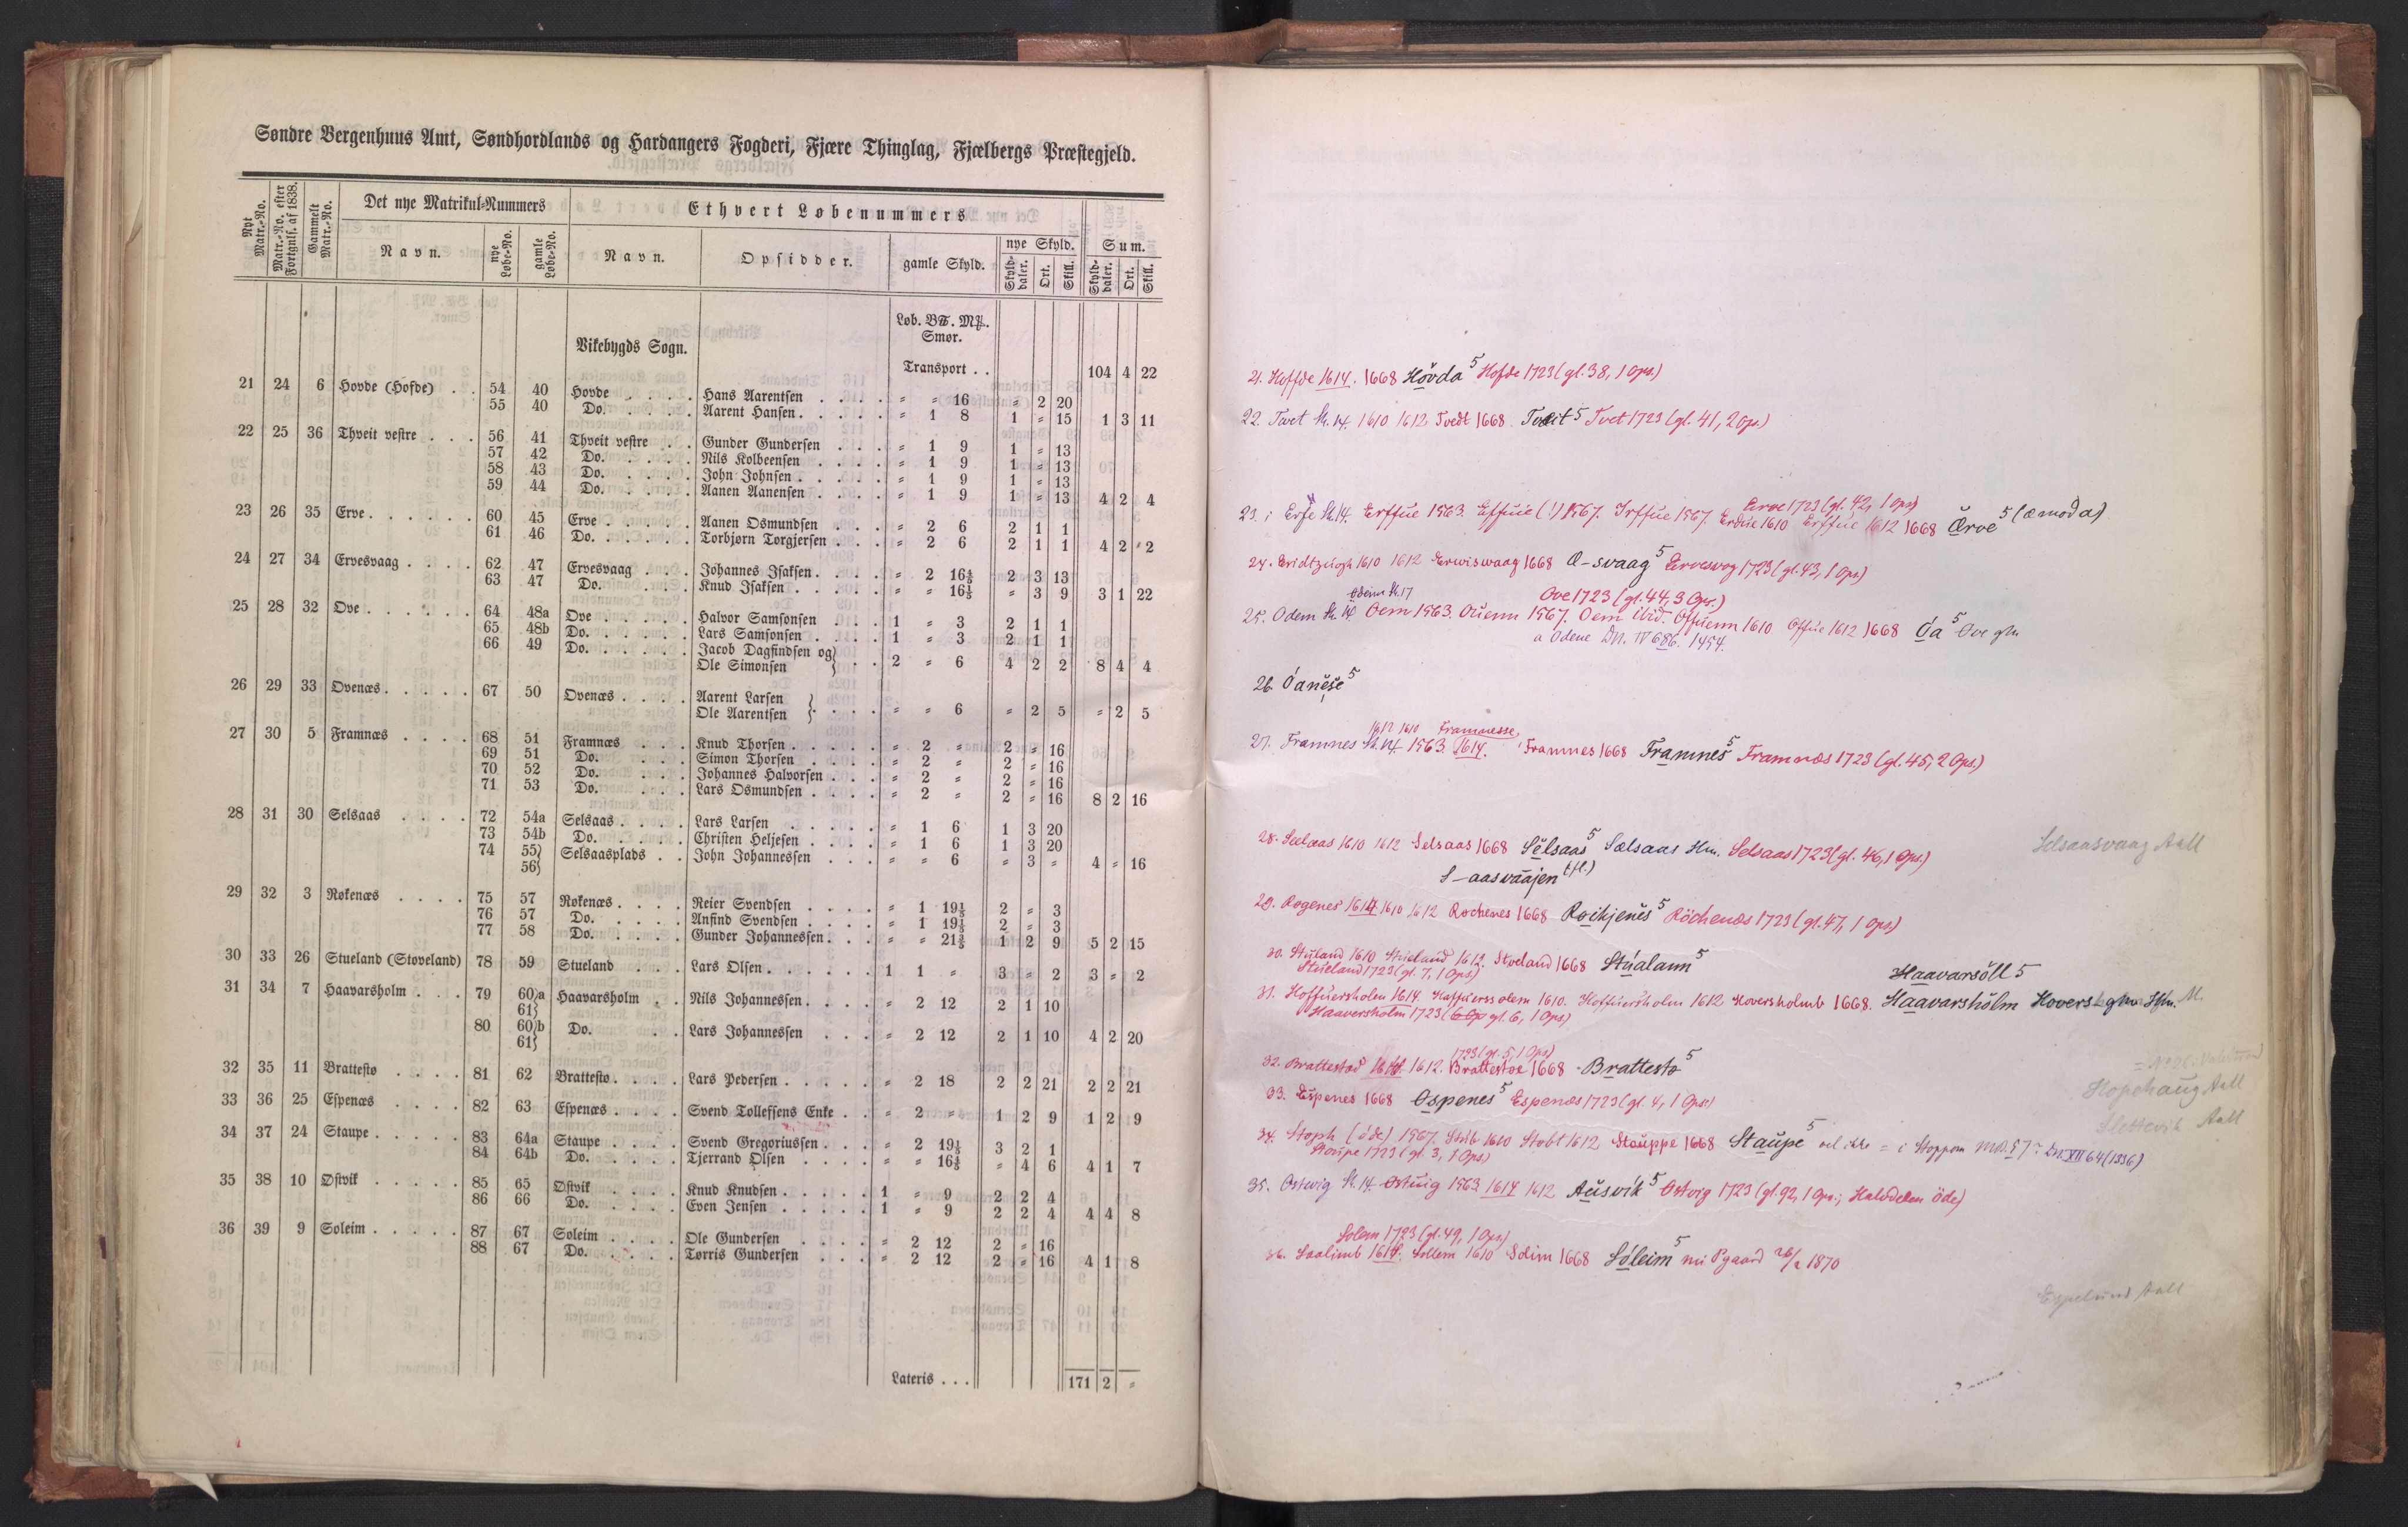 Søndre Bergenhuus Amt, Søndhordlands og Hardangers Fogderi, Fjære Thinglag, Fjælbergs Præstegjeld.
Nyt Matr.-No. Matr.-No. efter Fortgnls. af 1838. Gammelt Matr.-No. Det nye Matrikul-Nummers Ethvert Løbenummers
Navn. nye Løbe-No. gamle Løbe-No. Navn. Opsidder. gamle Skyld. nye Skyld. Sum.
Skylddaler. Ort. Skill. Skylddaler. Ort. Skill.
Vikebygds Sogn. Løb. B℔. M℔. Smør.
Transport . . 104 4 22
21 24 6 Hovde (Hofde) . . 54 40 Hovde . . . . Hans Aarentsen . . . . " " 16 " 2 20
55 40 Do. . . . . Aarent Hansen . . . . " 1 8 1 " 15 1 3 11
22 25 36 Thveit vestre . . . 56 41 Thveit vestre . . Gunder Gundersen . . . " 1 9 1 " 13
57 42 Do. . . . . Nils Kolbeensen . . . . " 1 9 1 " 13
58 43 Do. . . . . John Johnsen . . . . . " 1 9 1 " 13
59 44 Do. . . . . Aanen Aanensen . . . . " 1 9 1 " 13 4 2 4
23 26 35 Erve . . . . . . 60 45 Erve . . . . . Aanen Osmundsen . . . " 2 6 2 1 1
61 46 Do. . . . . . Torbjørn Torgjersen . . . " 2 6 2 1 1 4 2 2
24 27 34 Ervesvaag . . . . 62 47 Ervesvaag . . . Johannes Isaksen . . . . " 2 16⅘ 2 3 13
63 47 Do. . . . . Knud Isaksen . . . . . " " 16⅕ " 3 9 3 1 22
25 28 32 Ove . . . . . . 64 48a Ove . . . . . Halvor Samsonsen . . . 1 " 3 2 1 1
65 48b Do. . . . . . Lars Samsonsen . . . . 1 " 3 2 1 1
66 49 Do. . . . . . Jacob Dagfindsen og
Ole Simonsen . . 2 " 6 4 2 2 8 4 4
26 29 33 Ovenæs . . . . . 67 50 Ovenæs . . . . Aarent Larsen
Ole Aarentsen . . . . " " 6 " 2 5 " 2 5
27 30 5 Framnæs . . . . 68 51 Framnæs . . . Knud Thorsen . . . . . " 2 " 2 " 16
69 51 Do. . . . Simon Thorsen . . . . " 2 " 2 " 16
70 52 Do. . . . Johannes Halvorsen . . . " 2 " 2 " 16
71 53 Do. . . . Lars Osmundsen . . . . " 2 " 2 " 16 8 2 16
28 31 30 Selsaas . . . . 72 54a Selsaas . . . . Lars Larsen . . . . . " 1 6 1 3 20
73 54b Do. . . . . Christen Heljesen . . . . " 1 6 1 3 20
74 55 56 Selsaasplads . . John Johannessen . . . " " 6 " 3 " 4 " 16
29 32 3 Røkenæs . . . . 75 57 Røkenæs . . . . Reier Svendsen . . . . " 1 19⅕ 2 " 3
76 57 Do. . . . . Anfind Svendsen . . . . " 1 19⅕ 2 " 3
77 58 Do. . . . . Gunder Johannessen . . . " " 21⅗ 1 2 9 5 2 15
30 33 26 Stueland (Stoveland) 78 59 Stueland . . . Lars Olsen . . . . . . 1 1 " 3 " 2 3 " 2
31 34 7 Haavarsholm . . . 79 60 61 a Haavarsholm . . Nils Johannessen . . . . " 2 12 2 1 10
80 60 61 b Do. . . Lars Johannessen . . . " 2 12 2 1 10 4 2 20
32 35 11 Brattestø . . . . 81 62 Brattestø . . . . Lars Pedersen . . . . . " 2 18 2 2 21 2 2 21
33 36 25 Espenæs . . . . 82 63 Espenæs . . . . Svend Tollefsens Enke . . " 2 " 1 2 9 1 2 9
34 37 24 Staupe . . . . . 83 64a Staupe . . . . Svend Gregoriussen . . . " 2 19⅕ 3 2 1
84 64b Do. . . . . Tjerrand Olsen . . . . " " 16⅘ " 4 6 4 1 7
35 38 10 Østvik . . . . . 85 65 Østvik . . . . Knud Knudsen . . . . . 1 " 9 2 2 4
86 66 Do. . . . . Even Jensen . . . . . 1 " 9 2 2 4 4 4 8
36 39 9 Soleim . . . . . 87 67 Soleim . . . . Ole Gundersen . . . . " 2 12 2 " 16
88 67 Do. . . . . Tørris Gundersen . . . " 2 12 2 " 16 4 1 8
Lateris . . . 171 2 "
21. Hoffde 1614. 1668 Hövda 5 Hofde 1723 (gl. 38, 1 Ops.)
22. Tvet St. 14. 1610 1612 Tvedt 1668. Tvæit 5 Tvet 1723 (gl. 41, 2 Ops.)
Erve 1723 (gl. 42, 1 Ops)
23. i Erfe St. 14. Erffue 1563. Effuie (!) 1567. Irffue 1567. Erdue 1610 Erffue 1612 1668 Ærve 5 (æ mod a)
24. 1610 1612 Erwiswaag 1668 Æ-svaag 5 Ervesvog 1723 (gl. 43, 1 Ops)
Odeim St. 17 Ove 1723 (gl. 44, 3 Ops.)
25. Odem St. 14 Oem 1563. Ouenn 1567. Oem ibid. Offuenn 1610 Offue 1612 1668 Óa 5 Ove ghn
a Odene DN. IV 686. 1454.
26. Óanese 5
1612 1610 Framnnesse
27. Framnes St. 14 1563. 1614. Framnes 1668 Framnes 5 Framnæs 1723 (gl. 45, 2 Ops.)
28. Seelaas 1610 1612 Selsaas 1668 Selsaas 5 Sælsaas Hm. Selsaas 1723 (gl. 46, 1 Ops.) Selsaasvaag Aall
S-aasvaajen (fl.)
29. Rogenes 1614 1610 1612 Rochenes 1668 Roikjenes 5 Röchenæs 1723 (gl. 47, 1 Ops)
30. Stuland 1610 Stueland 1612. Stoeland 1668 Stúalann 5
Stueland 1723 (gl. 7, 1 Ops) Haavarsöll 5
31. Hoffuersholm 1614. Haffuerssolem 1610. Hoffuersholm 1612 Hoversholmb 1668. Haavarshölm Hovers- ghn Hm. M.
Haaversholm 1723 (gl. 6, 1 Ops)
1723 (gl. 5, 1 Ops)
32. Brattestod 1614. 1612. Brattestoe 1668 - Brattestø 5
Hopehaug Aall
33. Espenes 1668 Ospenes 5 Espenæs 1723 (gl. 4, 1 Ops.)
Slettevik Aall
34. Stoph (öde) 1567. Stub 1610 Stobt 1612 Stauppe 1668 Staupe 5 vel ikke = i Stoppom DN. XII 64 (1336)
Stoupe 1723 (gl. 3, 1 Ops)
35. Ostwig St. 14. Ostuig 1563. 1614 1612 Ausvík 5 Ostvig 1723 (gl. 92, 1 Ops.; Halvdelen öde)
Solem 1723 (gl. 49, 1 Ops)
36. Saalimb 1614. Sollem 1610 Solim 1668 Sóleim 5 nu Pgaard 26/2 1870
Espelund Aall